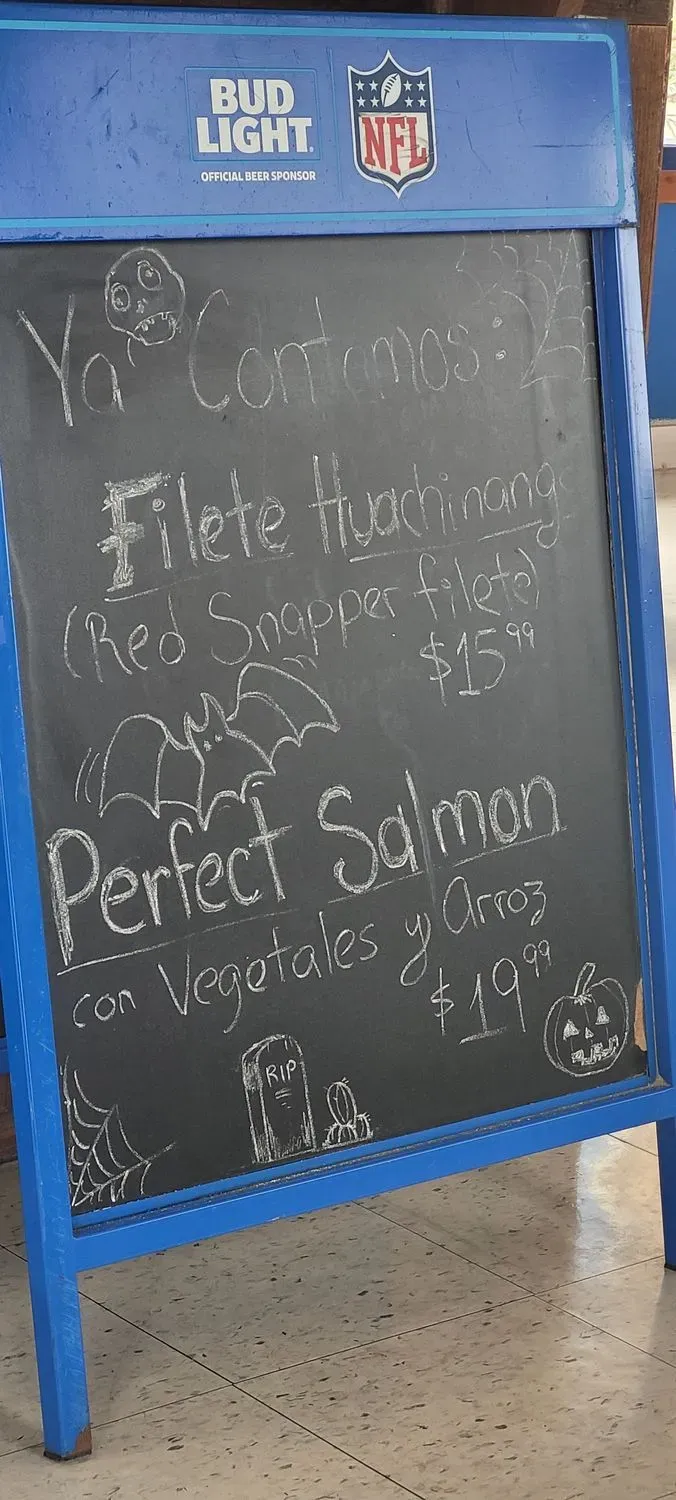 BUD
LIGHT.
OFFICIAL BEER SPONSOR
NFL
Ya Contamos:
Filete Huachinang
(Red Snapper filete)
$15.99
Perfect Salmon
con Vegetales y Arroz
$19.99
RIP